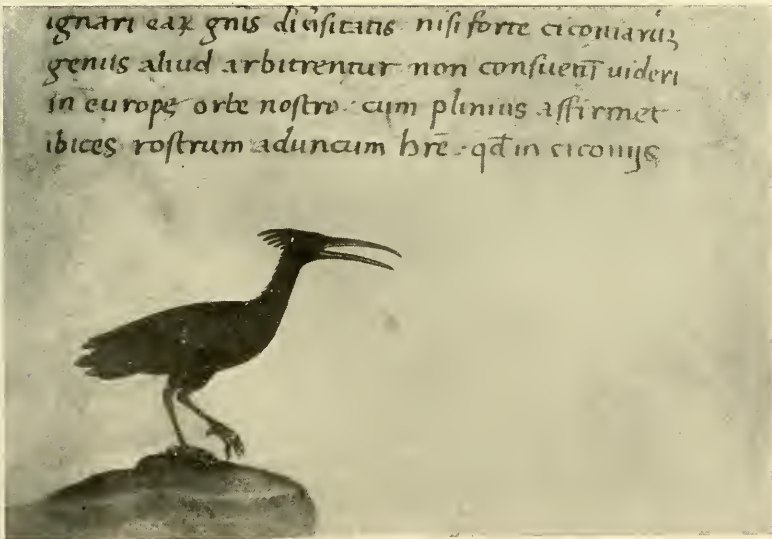 ignari eaꝝ gn̄is diũsitatis nisi forte ciconiarũ
geniis aliud arbitrentur non consueñt uideri
in europę orbe nostro · cum plinius affirmet
ibices rostrum aduncum hr̄e · qđ in ciconijs